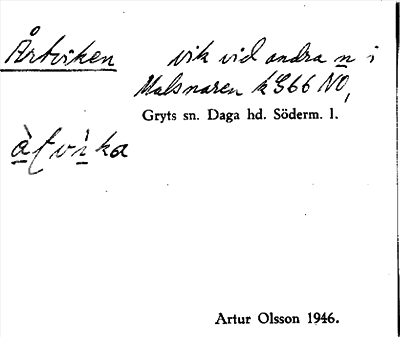 Årtviken vik vid andra n i
Malsnaren k G66 NO,
Gryts sn. Daga hd. Söderm. l.
Artur Olsson 1946.